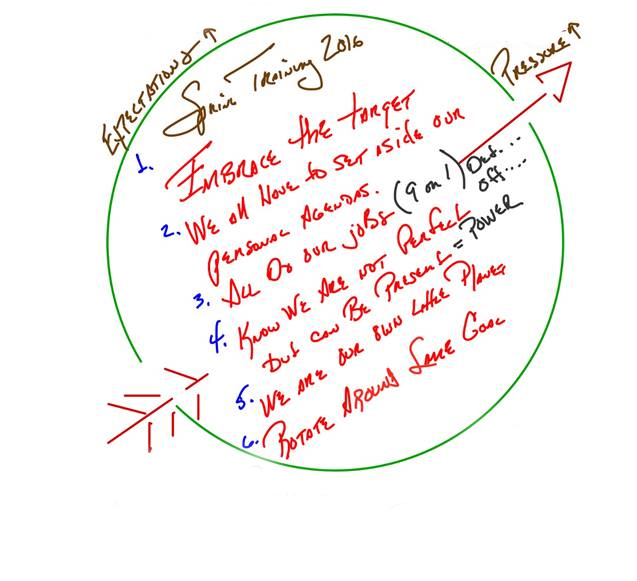 EXPECTATIONS ↑
PRESSURE ↑
Spring Training 2016
1. EMBRACE the target
2. We all Have to set aside our
personal Agendas.
3. All Do our jobs (9 on 1) Def...
off....
4. Know We Are not Perfect
but can Be Present = POWER
5. We are our own little Planet
6. Rotate Around Same Goal